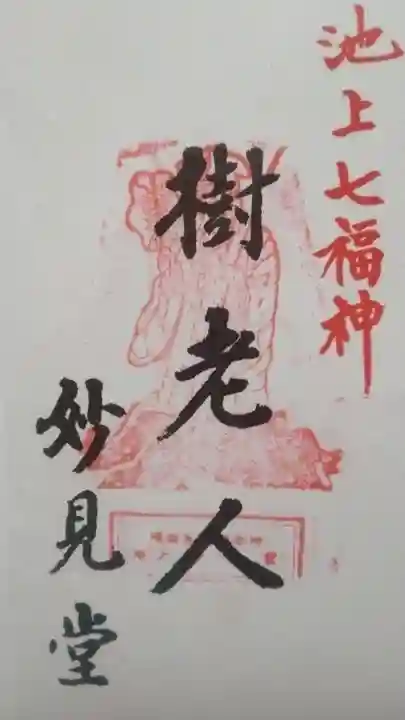 池上七福神
樹老人
妙見堂